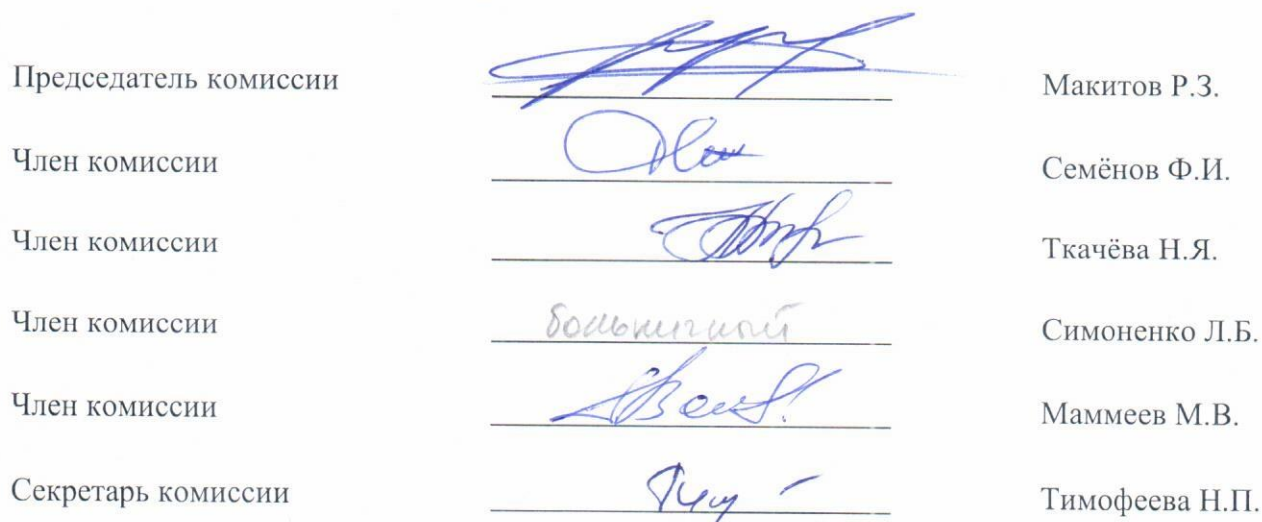 Председатель комиссии Макитов Р.З.
Член комиссии Семёнов Ф.И.
Член комиссии Ткачёва Н.Я.
Член комиссии больничный Симоненко Л.Б.
Член комиссии Маммеев М.В.
Секретарь комиссии Тимофеева Н.П.